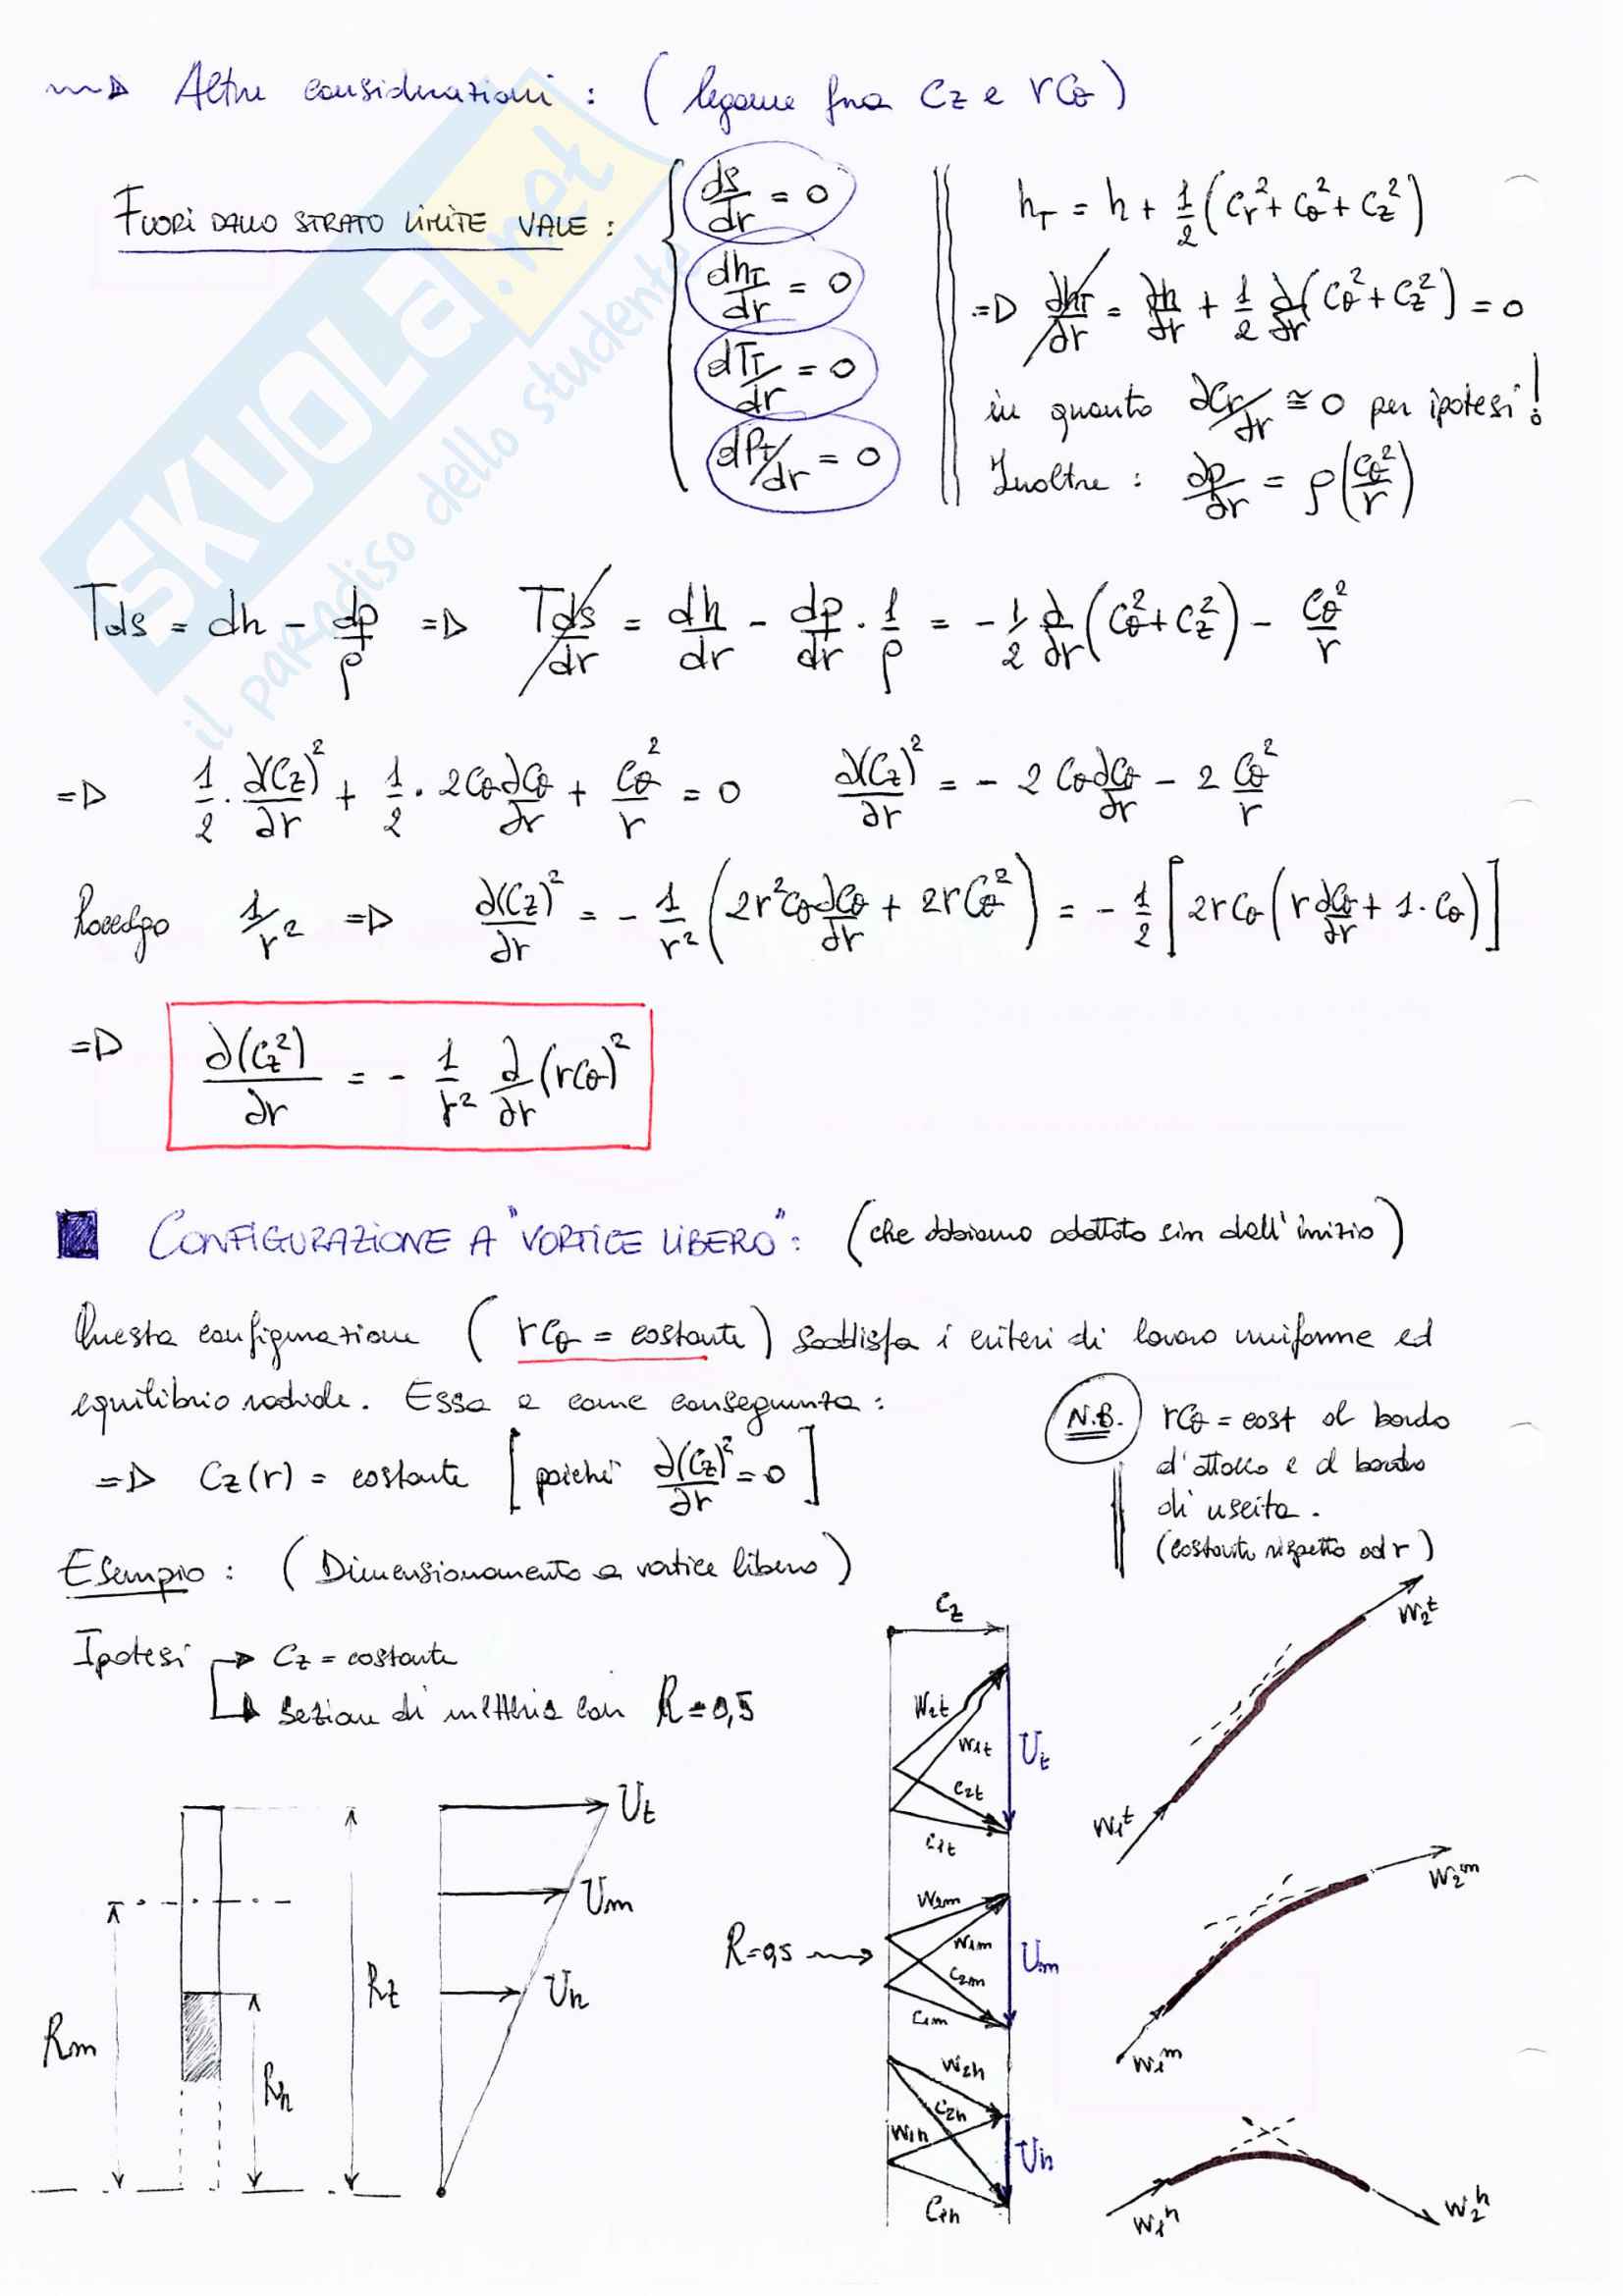 ⇒ Altre considerazioni : ( legame fra Cz e rCθ )
FUORI DALLO STRATO LIMITE VALE :
ds/dr = 0
dhT/dr = 0
dTT/dr = 0
dPT/dr = 0
hT = h + 1/2 (Cr² + Cθ² + Cz²)
=> ∂hT/∂r = ∂h/∂r + 1/2 ∂/∂r (Cθ² + Cz²) = 0
in quanto ∂Cr/∂r ≅ 0 per ipotesi!
Inoltre : ∂p/∂r = ρ(Cθ²/r)
Tds = dh - dp/ρ => Tds/dr = dh/dr - dp/dr · 1/ρ = - 1/2 ∂/∂r (Cθ² + Cz²) - Cθ²/r
=> 1/2 · ∂(Cz)²/∂r + 1/2 · 2Cθ ∂Cθ/∂r + Cθ²/r = 0 ∂(Cz)²/∂r = - 2 Cθ ∂Cθ/∂r - 2 Cθ²/r
Raccolgo 1/r² => ∂(Cz)²/∂r = - 1/r² (2r²Cθ ∂Cθ/∂r + 2rCθ²) = - 1/2 [2rCθ (r ∂Cθ/∂r + 1·Cθ)]
=> ∂(Cz²)/∂r = - 1/r² ∂/∂r (rCθ)²
CONFIGURAZIONE A "VORTICE LIBERO" : (che abbiamo adottato sin dall'inizio)
Questa configurazione ( rCθ = costante ) soddisfa i criteri di lavoro uniforme ed
equilibrio radiale. Essa a come conseguenza :
=> Cz(r) = costante [ poiché ∂(Cz)²/∂r = 0 ]
N.B. rCθ = cost al bordo
d'attacco e al bordo
di uscita.
(costante rispetto ad r)
Esempio : ( Dimensionamento a vortice libero )
Ipotesi → Cz = costante
→ Sezione di mezzeria con R = 0,5
Rm
Rh
Rt
Ut
Um
Uh
Cz
W2t
W1t
C2t
C1t
Ut
R=0,5
W2m
W1m
C2m
C1m
Um
W2h
C2h
W1h
C1h
Uh
W2t
W1t
W2m
W1m
W1h
W2h
SKUOLA.net
il paradiso dello studente